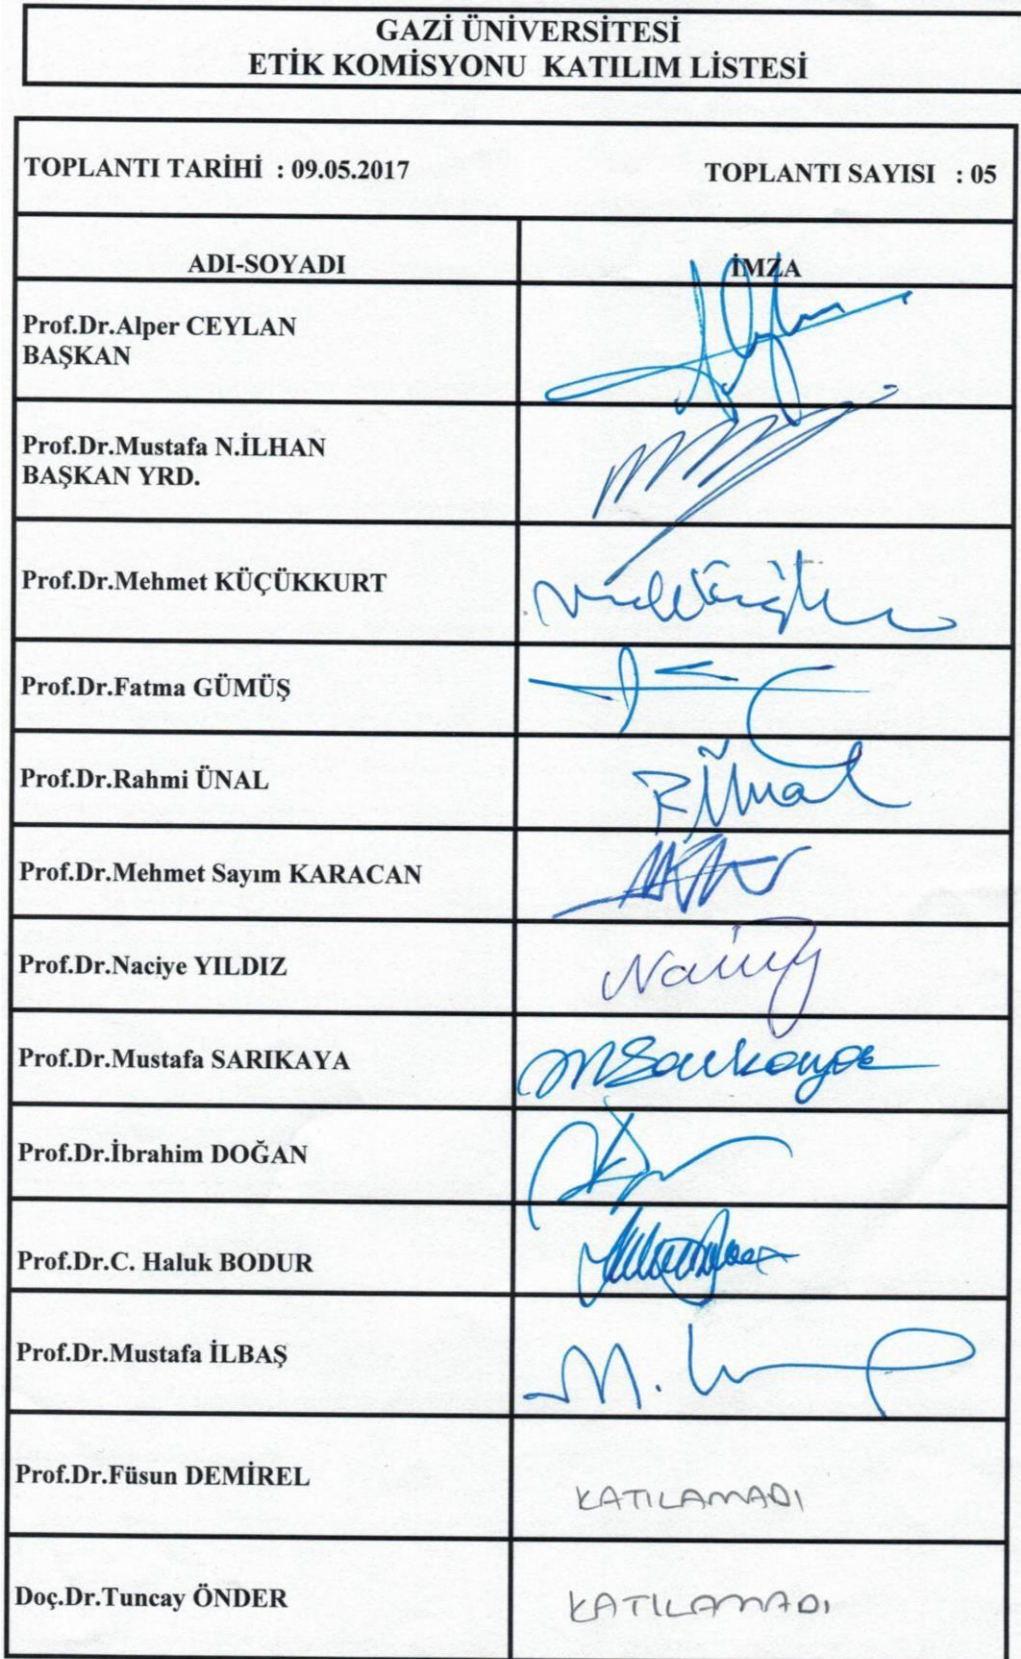 GAZİ ÜNİVERSİTESİ
ETİK KOMİSYONU KATILIM LİSTESİ
TOPLANTI TARİHİ : 09.05.2017 TOPLANTI SAYISI : 05
ADI-SOYADI İMZA
Prof.Dr.Alper CEYLAN
BAŞKAN
Prof.Dr.Mustafa N.İLHAN
BAŞKAN YRD.
Prof.Dr.Mehmet KÜÇÜKKURT
Prof.Dr.Fatma GÜMÜŞ
Prof.Dr.Rahmi ÜNAL
R Ünal
Prof.Dr.Mehmet Sayım KARACAN
Prof.Dr.Naciye YILDIZ
Prof.Dr.Mustafa SARIKAYA
MSarıkaya
Prof.Dr.İbrahim DOĞAN
Prof.Dr.C. Haluk BODUR
Prof.Dr.Mustafa İLBAŞ
Prof.Dr.Füsun DEMİREL
KATILAMADI
Doç.Dr.Tuncay ÖNDER
KATILAMADI